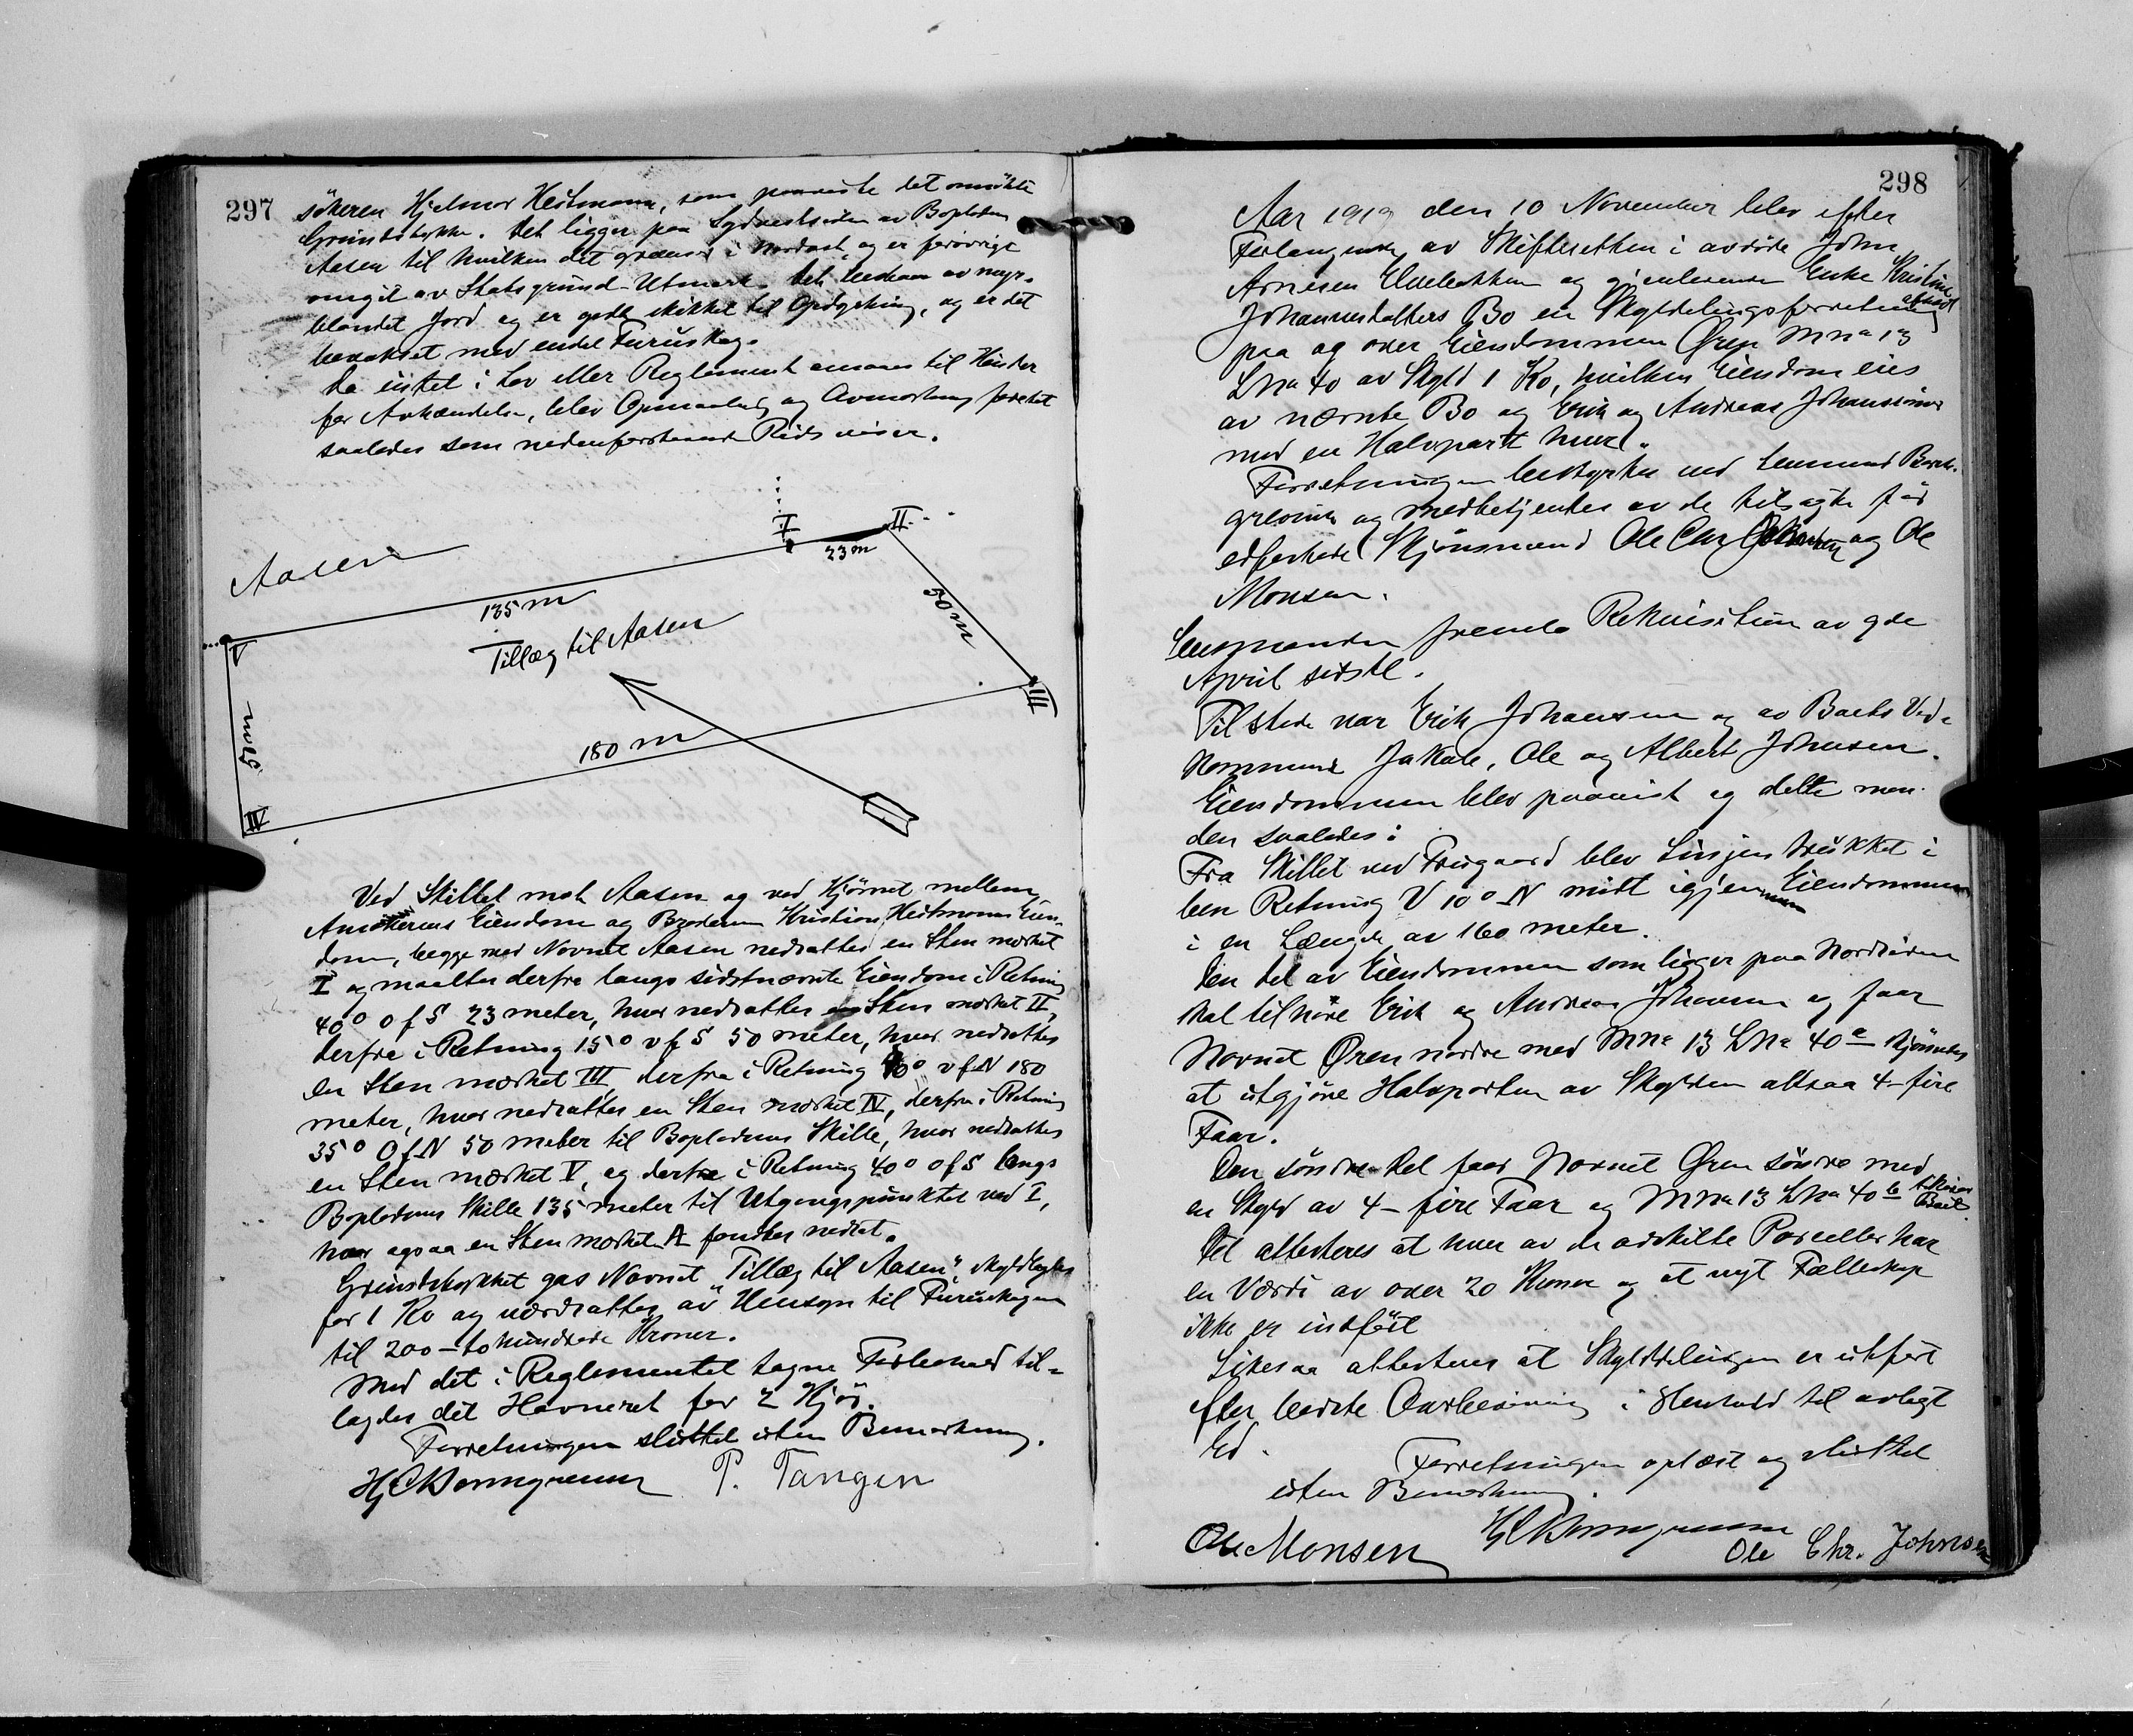 297
søkeren Hjelmar Heitmann, som paaviste det ansøkte
Grundstykke. Det ligger paa Sydvestsiden av Bopladsen
Aasen til hvilken det grænser i Nordost, og er forøvrigt
omgit av Statsgrund-Utmark. Det bestaar av myr-
blandet Jord og er godt skikket til Opdyrkning, og er det
bevokset med endel Furuskog.
Da intet i Lov eller Reglement ansaaes til Hinder
for Avhændelse, blev Opmaaling og Avmerkning foretat
saaledes som nedenforstaaende Rids viser.
I
II
23 m
Aasen
135 m
50 m
V
Tillæg til Aasen
III
50 m
180 m
IV
Ved Skillet mot Aasen og ved Hjørnet mellem
Ansøkerens Eiendom og Broderen Kristian Heitmanns Eien-
dom, begge med Navnet Aasen nedsattes en Sten merket
I og maaltes derfra langs sidstnævnte Eiendom i Retning
40° O f S 23 meter, hvor nedsattes en Sten merket II,
derfra i Retning 15° v f S 50 meter, hvor nedsattes
en Sten merket III, derfra i Retning 40° v f N 180
meter, hvor nedsattes en Sten merket IV, derfra i Retning
35° O f N 50 meter til Bopladsens Skille, hvor nedsattes
en Sten merket V, og derfra i Retning 40° O f S langs
Bopladsens Skille 135 meter til Utgangspunktet ved I,
hvor ogsaa en Sten merket A fandtes nedsat.
Grundstykket gas Navnet "Tillæg til Aasen" skyldlagtes
for 1 Kr og værdsattes av Hensyn til Furuskogen
til 200 – to hundrede Kroner.
Med det i Reglementet tagne Forbehold til-
lagdes det Havneret for 2 Kjør.
Forretningen sluttet uten Bemerkning.
P. Tangen
298
Aar 1919 den 10 November blev efter
Forlangende av Skifteretten i avdøde John
Arnesen og gjenlevende Enke Kristine
Johannesdatters Bo en Skyldelingsforretning avholdt
paa og over Eiendommen Øren Mno 13
Lno 40 av Skyld 1 Kr, hvilken Eiendom eies
av nævnte Bo og Erik og Andreas Johansen
med en Halvpart hver.
Forretningen bestyrtes ved Lensmand
og medbetjentes av de tilsagte før
edfæstede Skjønsmænd Ole Chr Johnsen og Ole
Monsen.
Lensmanden fremla Rekvisition av 9de
April sidstl.
Tilstede var Erik Johansen og av Boets Ved-
kommende Jakob, Ole og Albert Johnsen.
Eiendommen blev paavist og delte man
den saaledes:
Fra Skillet ved Frisgaard blev Linjen trukket i
ben Retning V 10° N midt igjennem Eiendommen
i en Længde av 160 meter.
Den del av Eiendommen som ligger paa Nordsiden
skal tilhøre Erik og Andreas Johansen og faar
Navnet Øren nordre med Mno 13 Lno 40 a skjønnedes
at utgjøre Halvparten av Skylden altsaa 4 – fire
Faar.
Den søndre Del faar Navnet Øren søndre med
en Skyld av 4 – fire Faar og Mno 13 Lno 40 b tilhører Boet.
Det attesteres at hver av de adskilte Parceller har
en Værdi av over 20 Kroner og at nyt Fælleskap
ikke er indført
Likesaa attesteres at Skylddelingen er utført
efter bedste Overbevisning i Henhold til avlagt
Ed.
Forretningen oplæst og sluttet
uten Bemerkning.
Ole Monsen
Ole Chr. Johnsen